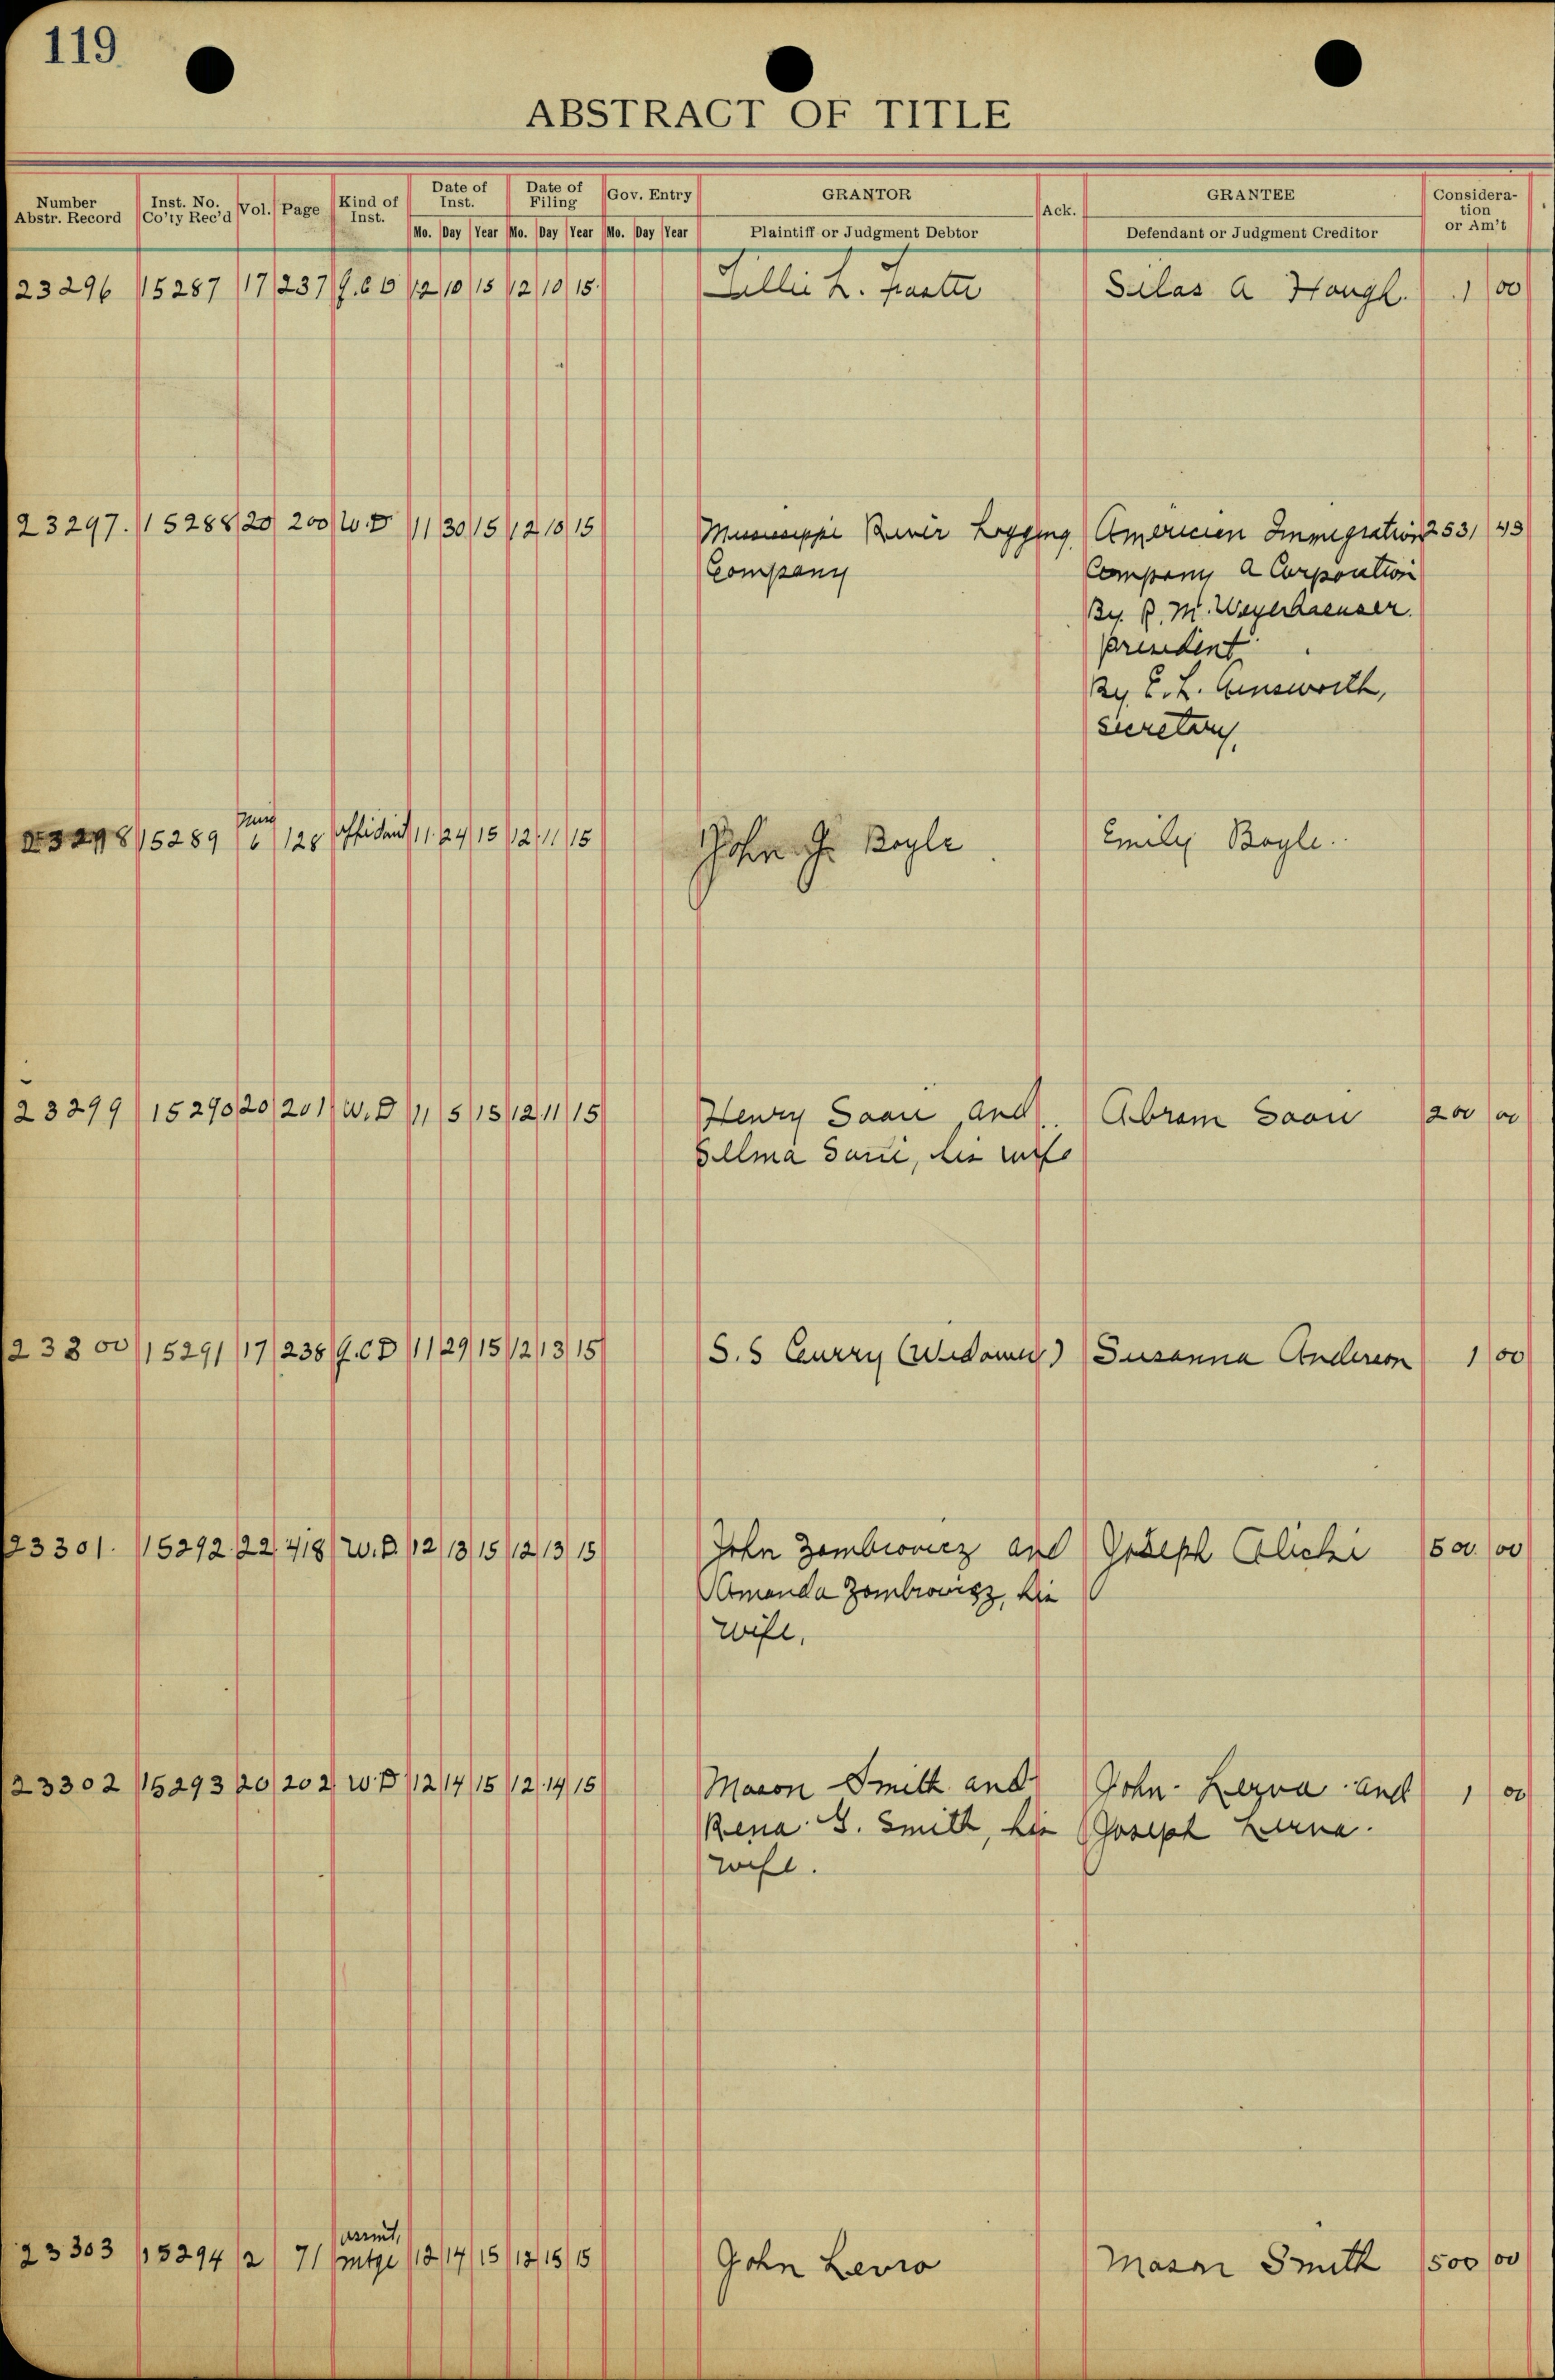 119
ABSTRACT OF TITLE
Number Abstr. Record Inst. No. Co'ty Rec'd Vol. Page Kind of Inst. Date of Inst. Date of Filing Gov. Entry GRANTOR Ack. GRANTEE Consideration or Am't
Mo. Day Year Mo. Day Year Mo. Day Year Plaintiff or Judgment Debtor Defendant or Judgment Creditor
23296 15287 17 237 Q.C D 12 10 15 12 10 15 Lillie L. Silas A Hough 1 00
23297. 15288 20 200 W.D 11 30 15 12 10 15 Mississippi River Logging American Immigration 2531 43
Company Company A Corporation
By. R. M. Weyerhaeuser.
president
By E. L. Ainsworth,
secretary,
23298 15289 Misc 6 128 affidavit 11 24 15 12 11 15 John J. Boyle Emily Boyle.
23299 15290 20 201 W.D 11 5 15 12 11 15 Henry Saari and Abram Saari 200 00
Sellma Saari, his wife
23300 15291 17 238 Q.C D 11 29 15 12 13 15 S. S Curry (Widower) Susanna Anderson 1 00
23301. 15292 22 418 W.D. 12 13 15 12 13 15 John Zombrowicz and Joseph 500 00
Amanda Zombrowicz, his
wife.
23302 15293 20 202 W.D 12 14 15 12 14 15 Mason Smith and John and 1 00
Rena G. Smith, his Joseph
wife.
23303 15294 2 71 assmt, mtge 12 14 15 12 15 15 John Mason Smith 500 00